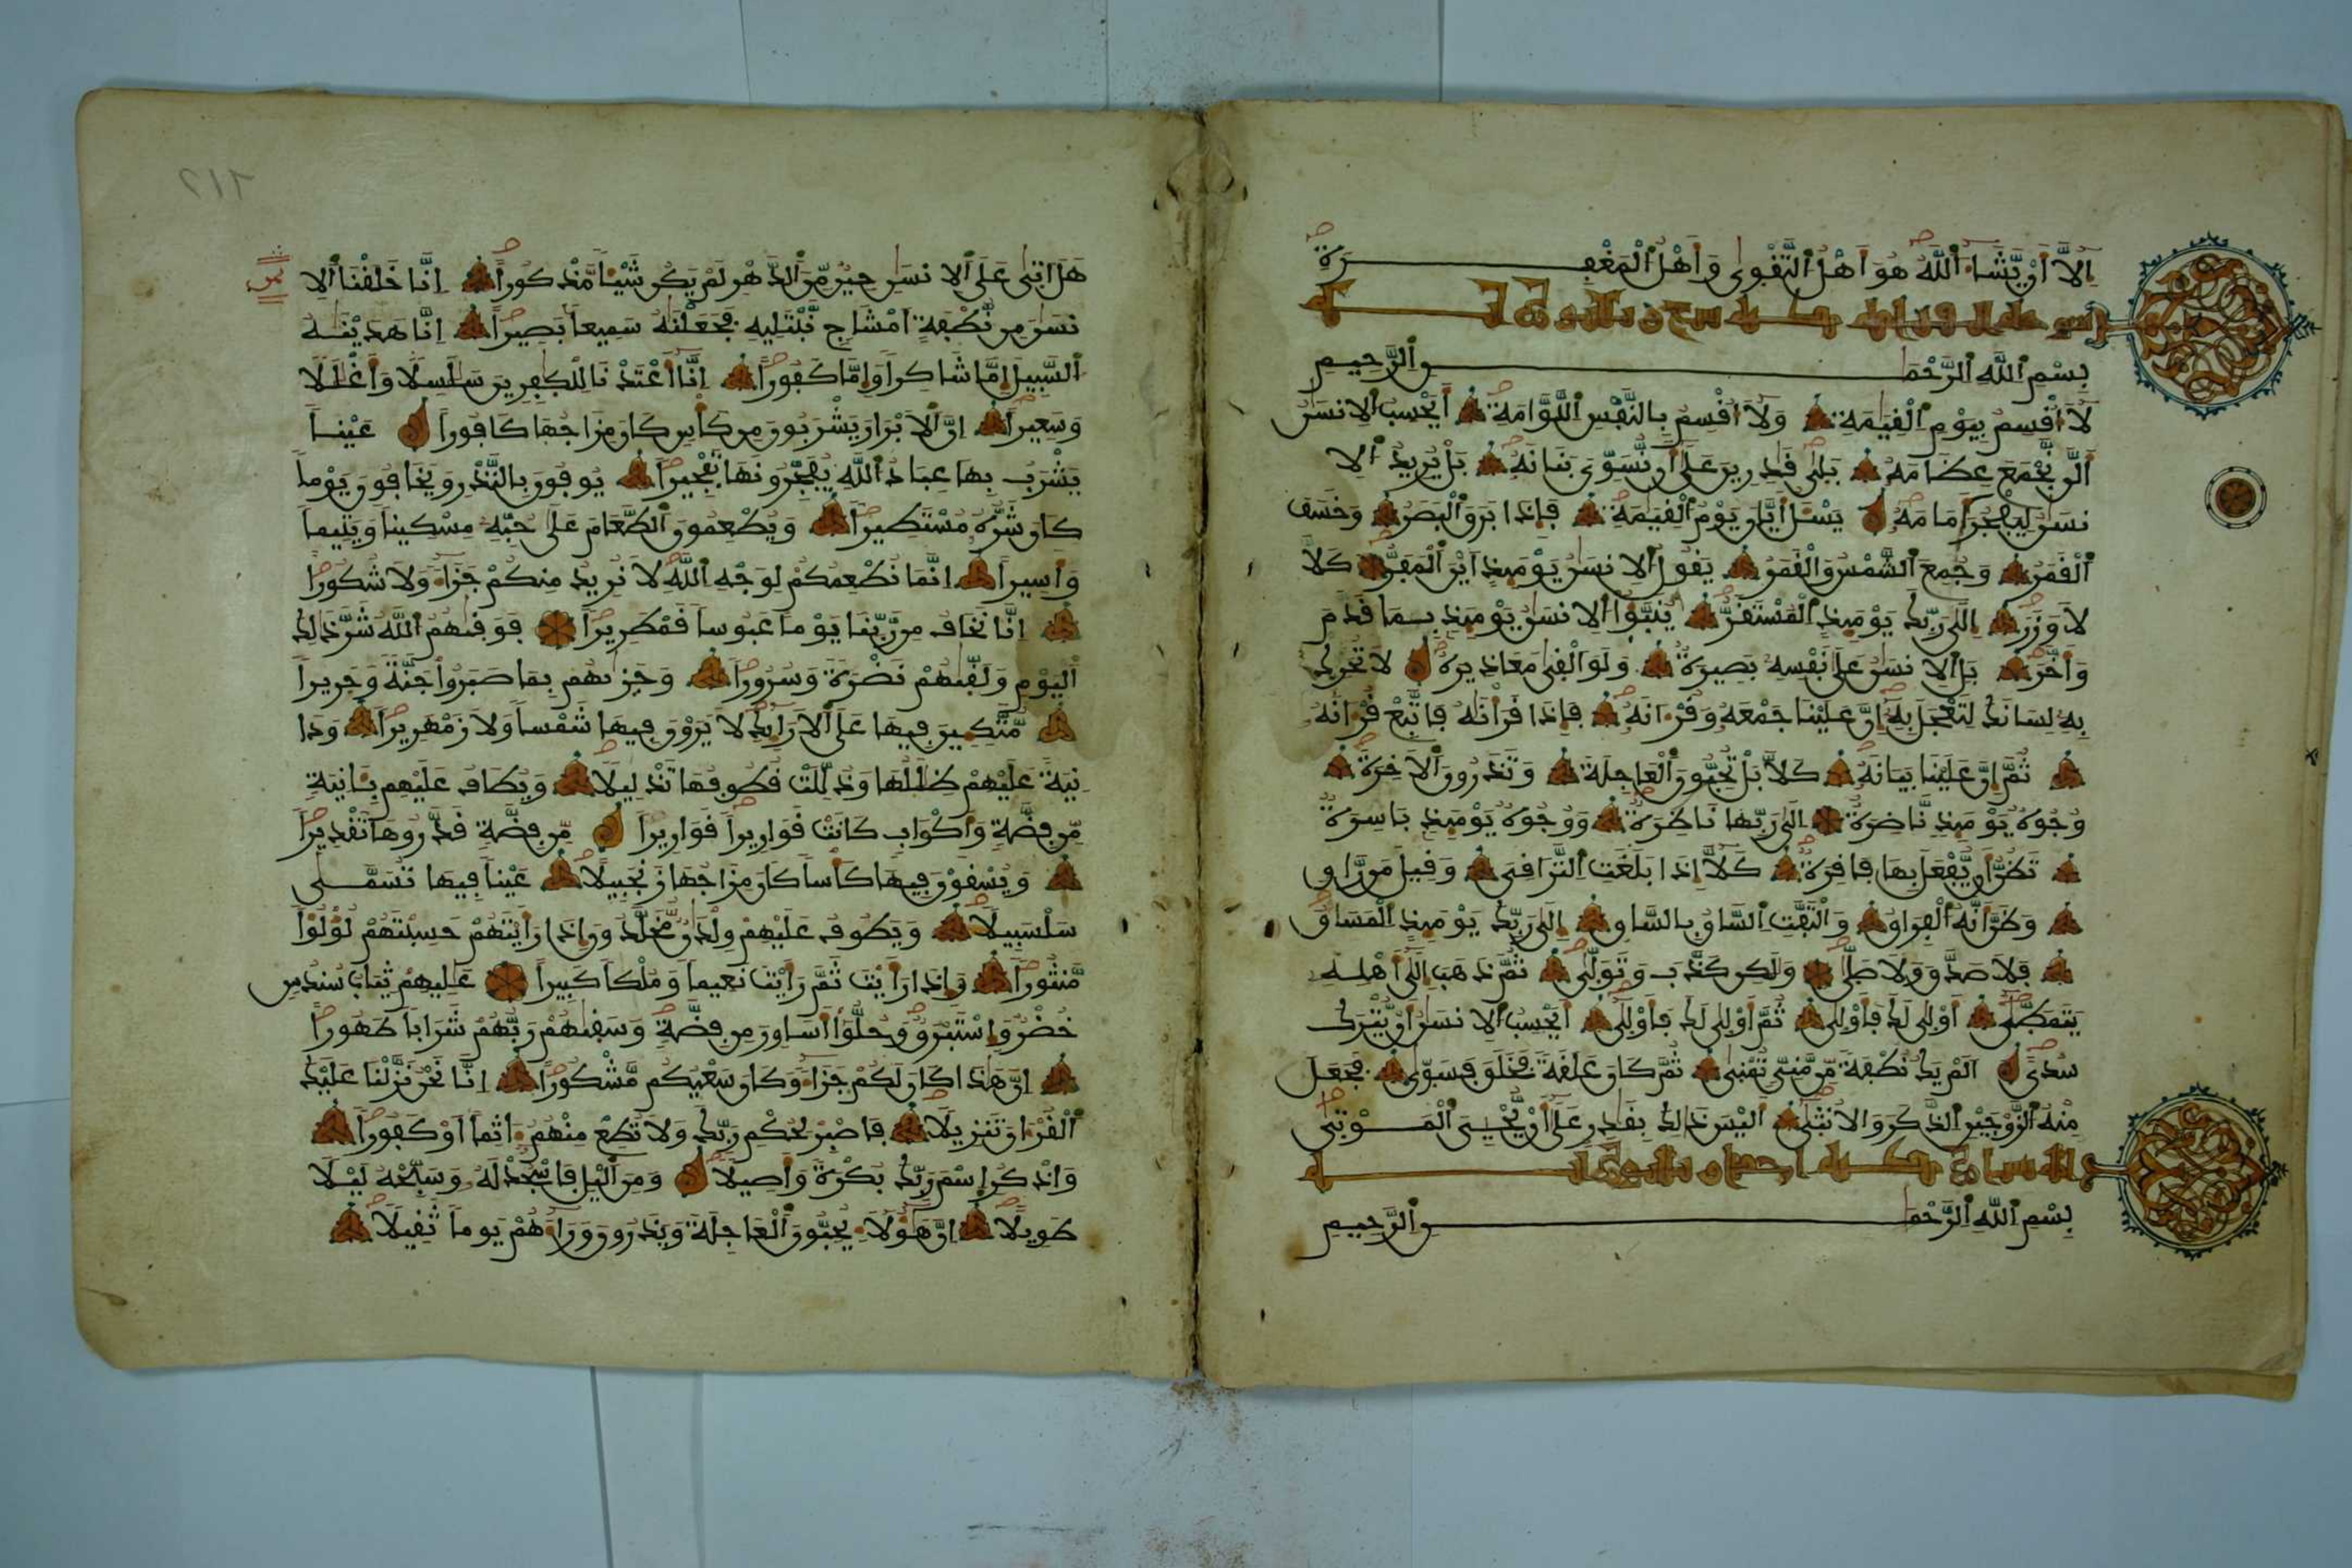 إِلَّا أَنْ يَّشَاءَ اَللَّهُ هُوَ أَهْلُ اُلتَّقْوٜى وَأَهْلُ اُلْمَغْفِرَةِ
بِسْمِ اِللَّهِ اِلرَّحْمَٰنِ اِلرَّحِيمِ
لَا أُقْسِمُ بِيَوْمِ اِلْقِيَٰمَةِ وَلَا أُقْسِمُ بِالنَّفْسِ اِللَّوَّامَةِ أَيَحْسِبُ اُلِانسَٰنُ
أَلَّن نَّجْمَعَ عِظَامَهُ بَلٜى قَٰدِرِينَ عَلَىٰ أَن نُّسَوِّيَ بَنَانَهُ بَلْ يُرِيدُ اُلِا
نسَٰنُ لِيَفْجُرَ أَمَامَهُ يَسْـَٔلُ أَيَّانَ يَوْمُ اُلْقِيَٰمَةِ فَإِذَا بَرَقَ اَلْبَصَرُ وَخَسَفَ
اَلْقَمَرُ وَجُمِعَ اَلشَّمْسُ وَالْقَمَرُ يَقُولُ اُلِانسَٰنُ يَوْمَئِذٍ أَيْنَ اَلْمَفَرُّ كَلَّا
لَا وَزَرَ إِلَىٰ رَبِّكَ يَوْمَئِذٍ اِلْمُسْتَقَرُّ يُنَبَّؤُا اُلِانسَٰنُ يَوْمَئِذٍ بِمَا قَدَّمَ
وَأَخَّرَ بَلِ اِلِانسَٰنُ عَلَىٰ نَفْسِهِ بَصِيرَةٌ وَلَوَ اَلْقٜى مَعَاذِيرَهُ لَا تُحَرِّكْ
بِهِ لِسَانَكَ لِتَعْجَلَ بِهِ إِنَّ عَلَيْنَا جَمْعَهُ وَقُرْءَانَهُ فَإِذَا قَرَأْنَٰهُ فَاتَّبِعْ قُرْءَانَهُ
ثُمَّ إِنَّ عَلَيْنَا بَيَانَهُ كَلَّا بَلْ تُحِبُّونَ اَلْعَاجِلَةَ وَتَذَرُونَ اَلَاخِرَةَ
وُجُوهٌ يَوْمَئِذٍ نَّاضِرَةٌ إِلَىٰ رَبِّهَا نَاظِرَةٌ وَوُجُوهٌ يَوْمَئِذٍ بَاسِرَةٌ
تَظُنُّ أَنْ يُّفْعَلَ بِهَا فَاقِرَةٌ كَلَّا إِذَا بَلَغَتِ اِلتَّرَاقِيَ وَقِيلَ مَن رَّاقٍ
وَظَنَّ أَنَّهُ اُلْفِرَاقُ وَالْتَفَّتِ اِلسَّاقُ بِالسَّاقِ إِلَىٰ رَبِّكَ يَوْمَئِذٍ اِلْمَسَاقُ
فَلَا صَدَّقَ وَلَا صَلّٜى وَلَٰكِن كَذَّبَ وَتَوَلّٜى ثُمَّ ذَهَبَ إِلَىٰ أَهْلِهِ
يَتَمَطّٜى أَوْلٜى لَكَ فَأَوْلٜى ثُمَّ أَوْلٜى لَكَ فَأَوْلٜى أَيَحْسِبُ اُلِانسَٰنُ أَنْ يُّتْرَكَ
سُدىً أَلَمْ يَكُ نُطْفَةً مِّن مَّنِيٍّ تُمْنٜى ثُمَّ كَانَ عَلَقَةً فَخَلَقَ فَسَوّٜى فَجَعَلَ
مِنْهُ اُلزَّوْجَيْنِ اِلذَّكَرَ وَالُانثٜى أَلَيْسَ ذَٰلِكَ بِقَٰدِرٍ عَلَىٰ أَنْ يُّحْيِيَ اَلْمَوْتٜى
بِسْمِ اِللَّهِ اِلرَّحْمَٰنِ اِلرَّحِيمِ
هَلَ اَتٜى عَلَى اَلِانسَٰنِ حِينٌ مِّنَ اَلدَّهْرِ لَمْ يَكُن شَيْـٔاً مَّذْكُوراً إِنَّا خَلَقْنَا اَلِا
نسَٰنَ مِن نُّطْفَةٍ اَمْشَاجٍ نَّبْتَلِيهِ فَجَعَلْنَٰهُ سَمِيعاً بَصِيراً إِنَّا هَدَيْنَٰهُ
اُلسَّبِيلَ إِمَّا شَاكِراً وَإِمَّا كَفُوراً إِنَّا أَعْتَدْنَا لِلْكَٰفِرِينَ سَلَٰسِلاً وَأَغْلَٰلاً
وَسَعِيراً إِنَّ اَلَابْرَارَ يَشْرَبُونَ مِن كَأْسٍ كَانَ مِزَاجُهَا كَافُوراً عَيْناً
يَشْرَبُ بِهَا عِبَادُ اُللَّهِ يُفَجِّرُونَهَا تَفْجِيراً يُوفُونَ بِالنَّذْرِ وَيَخَافُونَ يَوْماً
كَانَ شَرُّهُ مُسْتَطِيراً وَيُطْعِمُونَ اَلطَّعَامَ عَلَىٰ حُبِّهِ مِسْكِيناً وَيَتِيماً
وَأَسِيراً إِنَّمَا نُطْعِمُكُمْ لِوَجْهِ اِللَّهِ لَا نُرِيدُ مِنكُمْ جَزَاءً وَلَا شُكُوراً
إِنَّا نَخَافُ مِن رَّبِّنَا يَوْماً عَبُوساً قَمْطَرِيراً فَوَقٜىٰهُمُ اُللَّهُ شَرَّ ذَٰلِكَ
اَلْيَوْمِ وَلَقّٜىٰهُمْ نَضْرَةً وَسُرُوراً وَجَزٜىٰهُم بِمَا صَبَرُوا جَنَّةً وَحَرِيراً
مُّتَّكِـِٔينَ فِيهَا عَلَى اَلَارَائِكِ لَا يَرَوْنَ فِيهَا شَمْساً وَلَا زَمْهَرِيراً وَدَا
نِيَةً عَلَيْهِمْ ظِلَٰلُهَا وَذُلِّلَتْ قُطُوفُهَا تَذْلِيلاً وَيُطَافُ عَلَيْهِم بِـَٔانِيَةٍ
مِّن فِضَّةٍ وَأَكْوَابٍ كَانَتْ قَوَارِيراً قَوَارِيراً مِّن فِضَّةٍ قَدَّرُوهَا تَقْدِيراً
وَيُسْقَوْنَ فِيهَا كَأْساً كَانَ مِزَاجُهَا زَنجَبِيلاً عَيْناً فِيهَا تُسَمّٜى
سَلْسَبِيلاً وَيَطُوفُ عَلَيْهِمْ وِلْدَٰنٌ مُّخَلَّدُونَ إِذَا رَأَيْتَهُمْ حَسِبْتَهُمْ لُؤْلُؤاً
مَّنثُوراً وَإِذَا رَأَيْتَ ثَمَّ رَأَيْتَ نَعِيماً وَمُلْكاً كَبِيراً عَٰلِيهِمْ ثِيَابُ سُندُسٍ
خُضْرٌ وَإِسْتَبْرَقٌ وَحُلُّوا أَسَاوِرَ مِن فِضَّةٍ وَسَقٜىٰهُمْ رَبُّهُمْ شَرَاباً طَهُوراً
إِنَّ هَٰذَا كَانَ لَكُمْ جَزَاءً وَكَانَ سَعْيُكُم مَّشْكُوراً إِنَّا نَحْنُ نَزَّلْنَا عَلَيْكَ
اَلْقُرْءَانَ تَنزِيلاً فَاصْبِرْ لِحُكْمِ رَبِّكَ وَلَا تُطِعْ مِنْهُمُ ءَاثِماً أَوْ كَفُوراً
وَاذْكُرِ اِسْمَ رَبِّكَ بُكْرَةً وَأَصِيلاً وَمِنَ اَلَّيْلِ فَاسْجُدْ لَهُ وَسَبِّحْهُ لَيْلاً
طَوِيلاً إِنَّ هَٰؤُلَاءِ يُحِبُّونَ اَلْعَاجِلَةَ وَيَذَرُونَ وَرَاءَهُمْ يَوْماً ثَقِيلاً